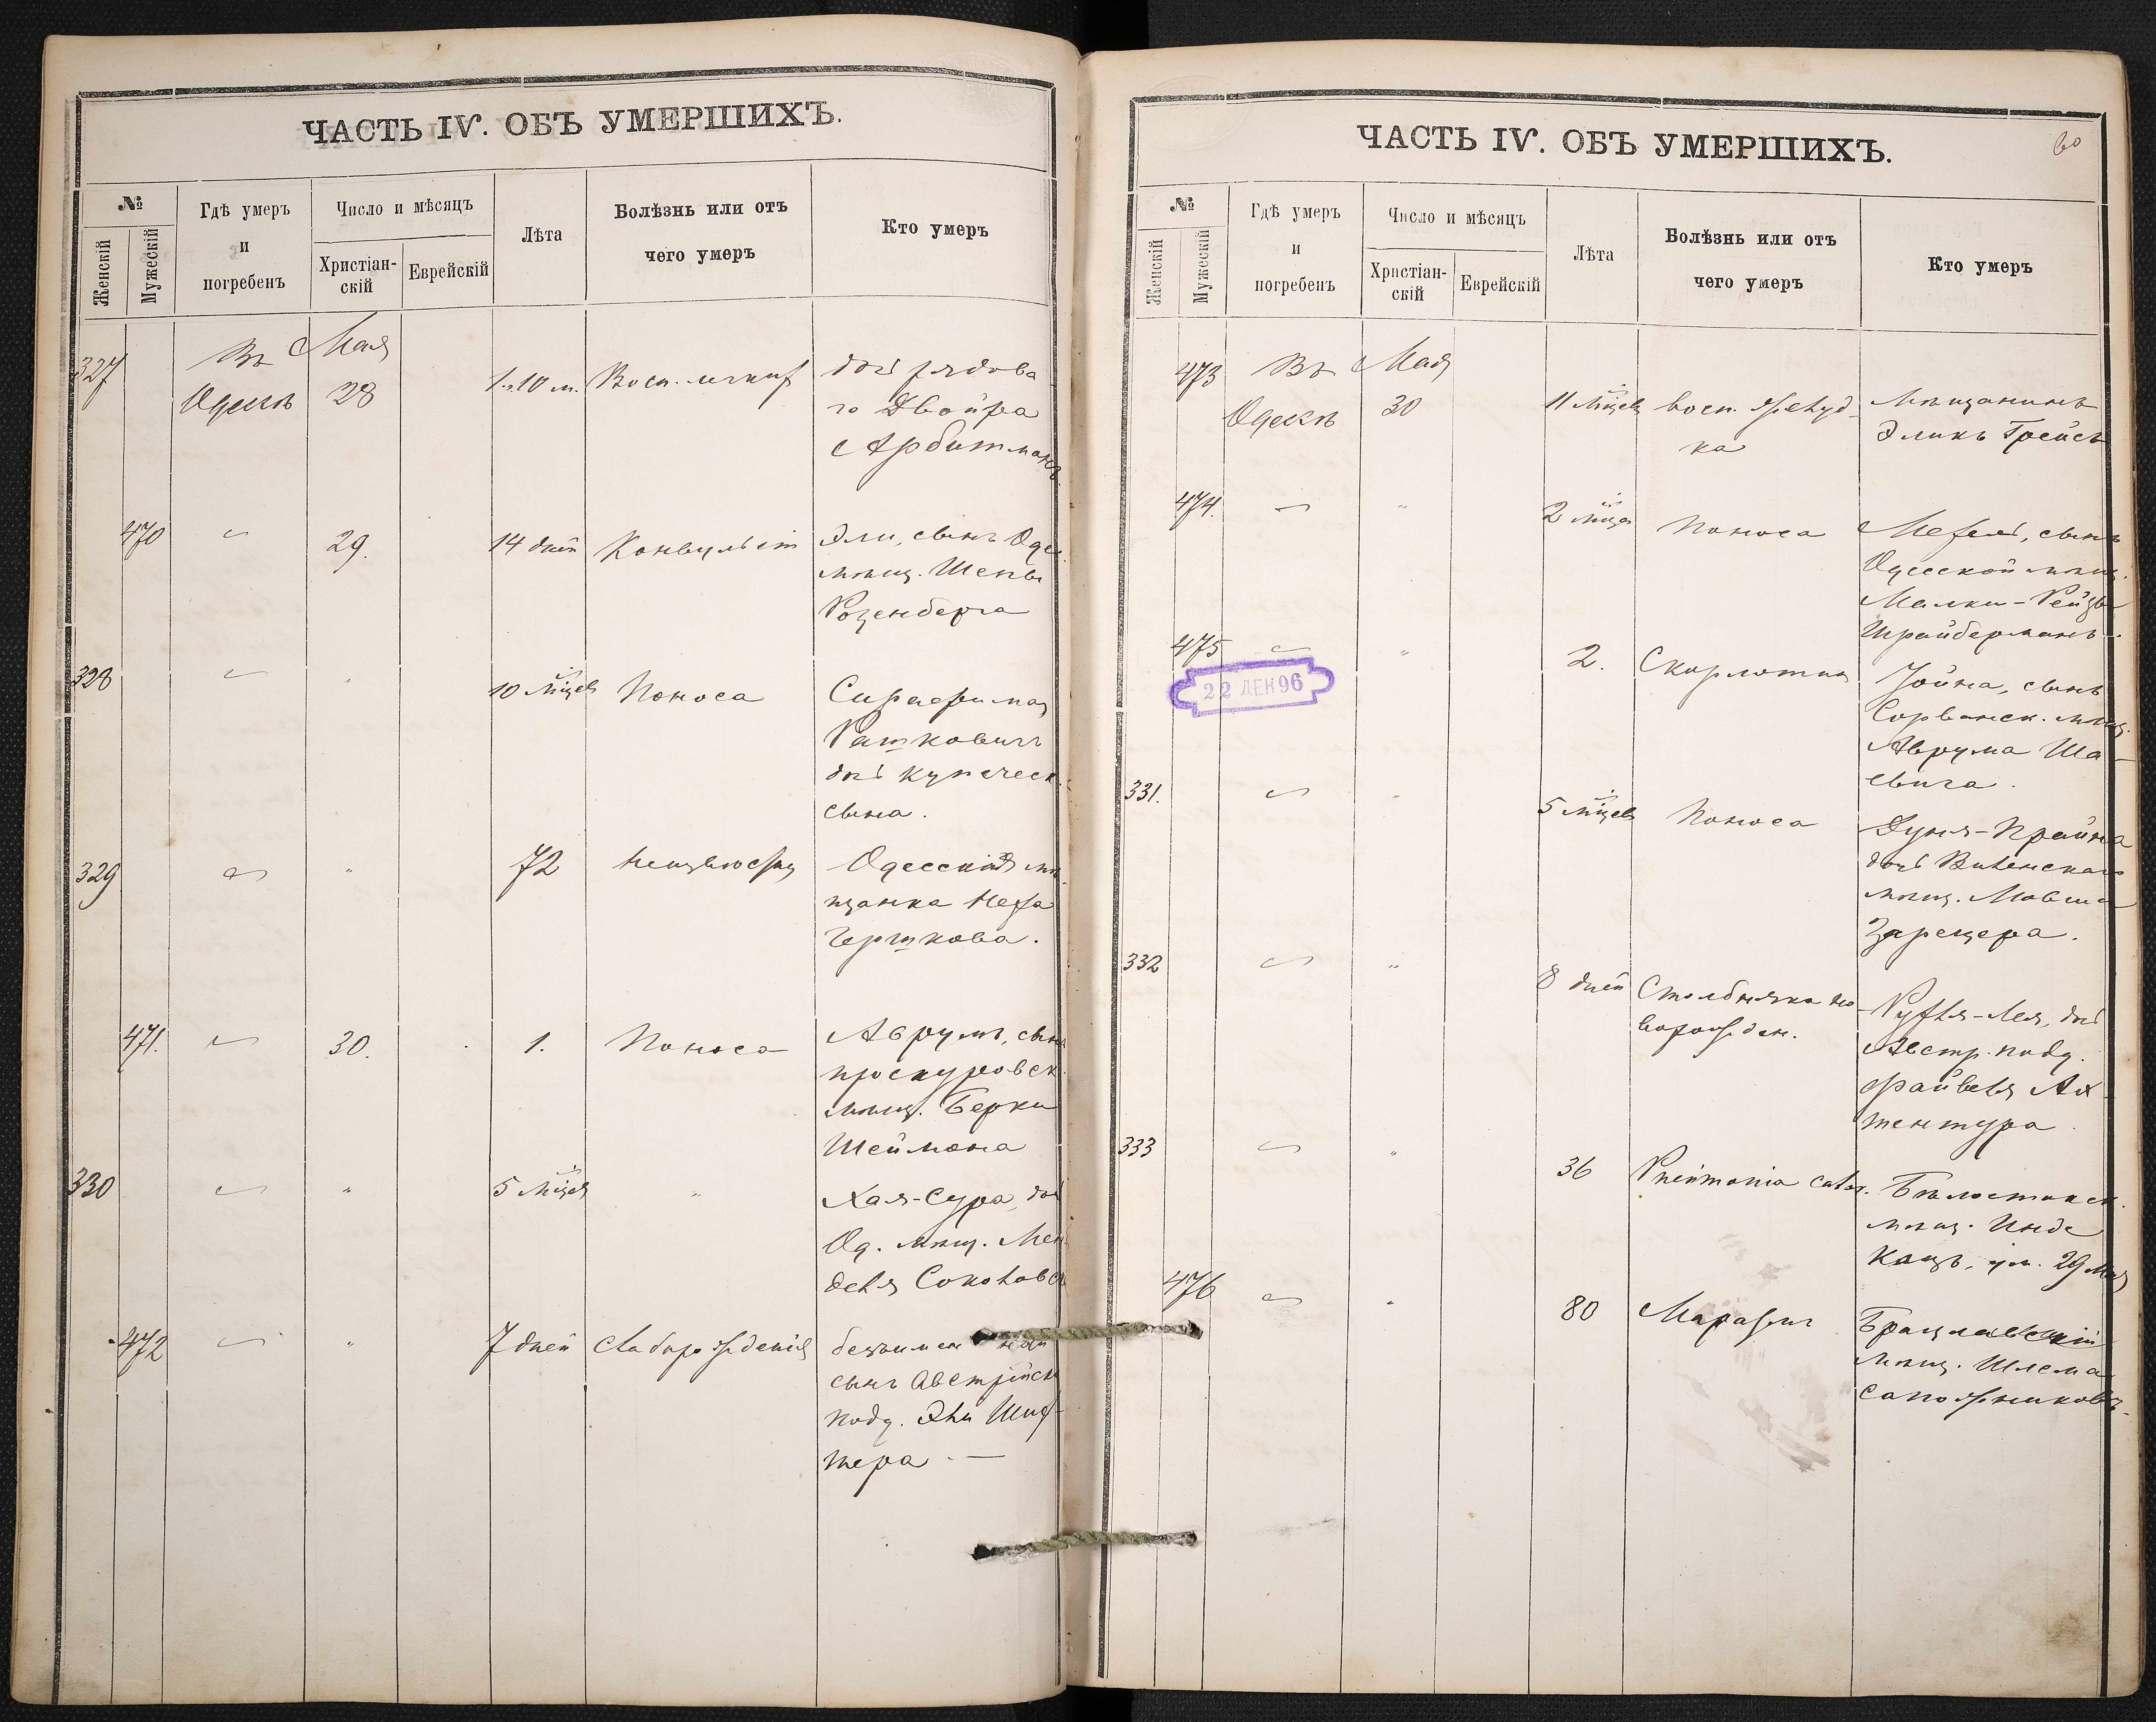 ЧАСТЬ IV. ОБЪ УМЕРШИХЪ.
№
Женскій
Мужескій
Гдѣ умеръ
и
погребенъ
Число и мѣсяцъ
Христіан-
скій
Еврейскій
Лѣта
Болѣзнь или отъ
чего умеръ
Кто умеръ
327 Въ Одессѣ Мая 28 1 10 м. Восп. легких дочь рядова
го Двойра
Арбитманъ
470 29. 14 дней Конвульсіи Эли, сынъ Одес.
мѣщ. Шепы
Розенберга
328 10 мѣцевъ Поноса
Рашковичъ
дочь купеческ.
сына.
329 72 Одесская мѣ-
щанка
Гершкова.
471. 30. 1. Поноса Аврумъ, сынъ
проскуровск.
мѣщ. Берки
Шеймана
330 5 мѣцевъ " Хая-Сура, дочь
Од. мѣщ. Мен
деля
472 " 7 дней Слаборожденія безъимен ный
сынъ Австрійск
подд. Эли Шиф-
тера —
ЧАСТЬ IV. ОБЪ УМЕРШИХЪ.
60
№
Женскій
Мужескій
Гдѣ умеръ
и
погребенъ
Число и мѣсяцъ
Христіан-
скій
Еврейскій
Лѣта
Болѣзнь или отъ
чего умеръ
Кто умеръ
473 Въ Одессѣ Мая 30 11 мѣцевъ восп. желуд-
ка
Мѣщанинъ
Эликъ Грейсъ
474. " 2 мѣца Поноса сынъ
Одесской мѣщ.
Малки-Рейзы
Шрайберманъ.
475 " 2. Скарлатина Іойна, сынъ
мѣщ.
Аврума Ша-
евича.
22 ДЕК 96
331. " 5 мѣцевъ Поноса Дуня-Прайна
дочь Виленскаго
мѣщ. Мовши
332 " 8 дней Столбняка но
ворожден.
Рухля-Лея, дочь
Австр. подд.
Файвеля Ах-
тентура.
333 " 36 Pneumonia catar. Бѣлостокск.
мѣщ. Инде
Кацъ, ум. 29 Мая
476 " 80 Маразмъ Брацлавскій
мѣщ. Шлема
Сапожниковъ.